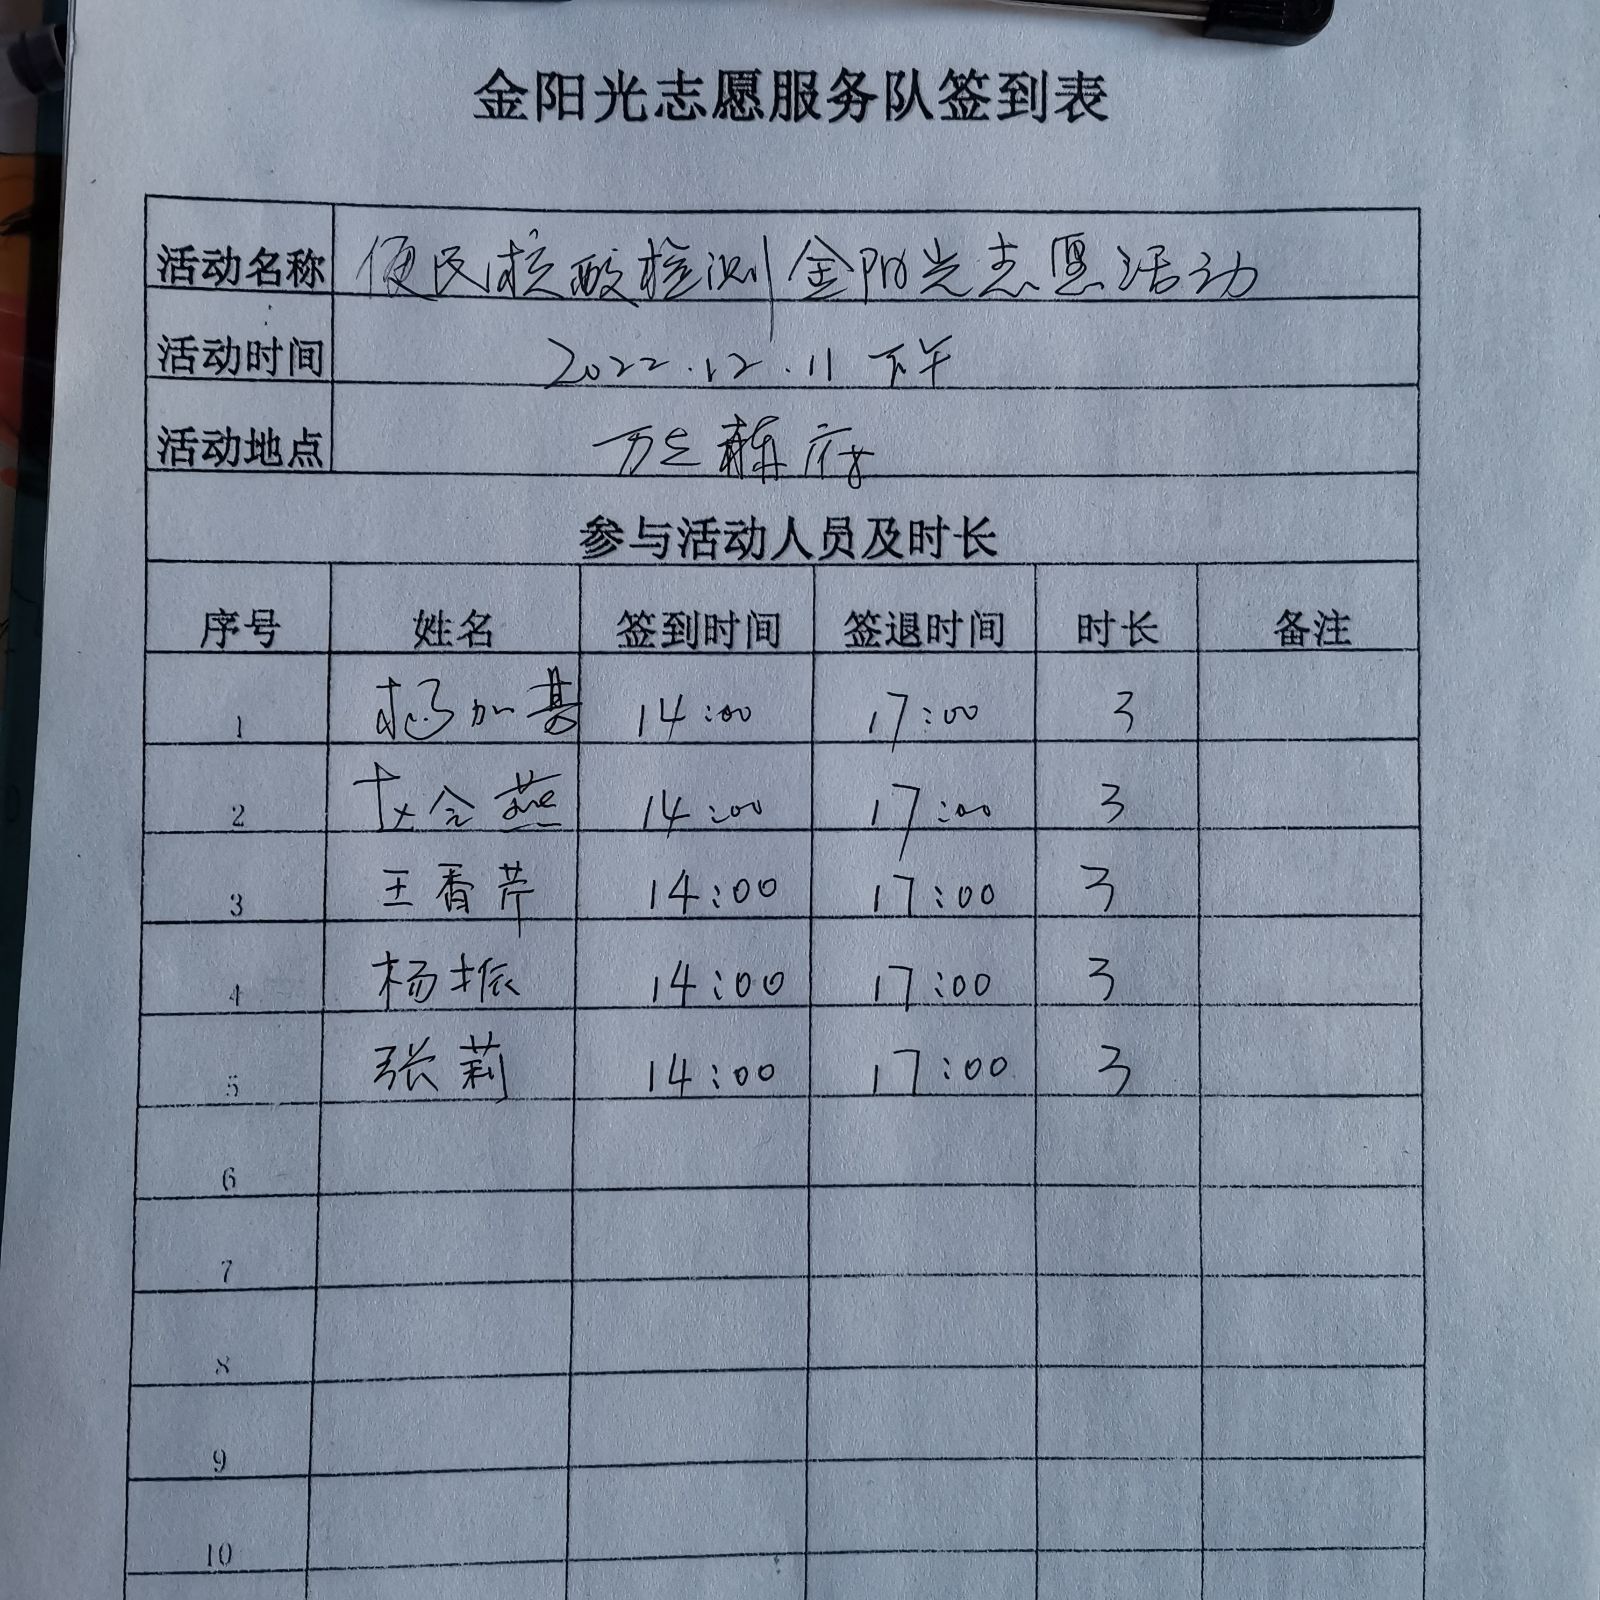 金阳光志愿服务队签到表
活动名称 便民核酸检测金阳光志愿活动
活动时间 2022.12.11 下午
活动地点 府
参与活动人员及时长
序号 姓名 签到时间 签退时间 时长 备注
1 杨加基 14:00 17:00 3
2 燕 14:00 17:00 3
3 王香芹 14:00 17:00 3
4 杨振 14:00 17:00 3
5 张莉 14:00 17:00 3
6
7
8
9
10